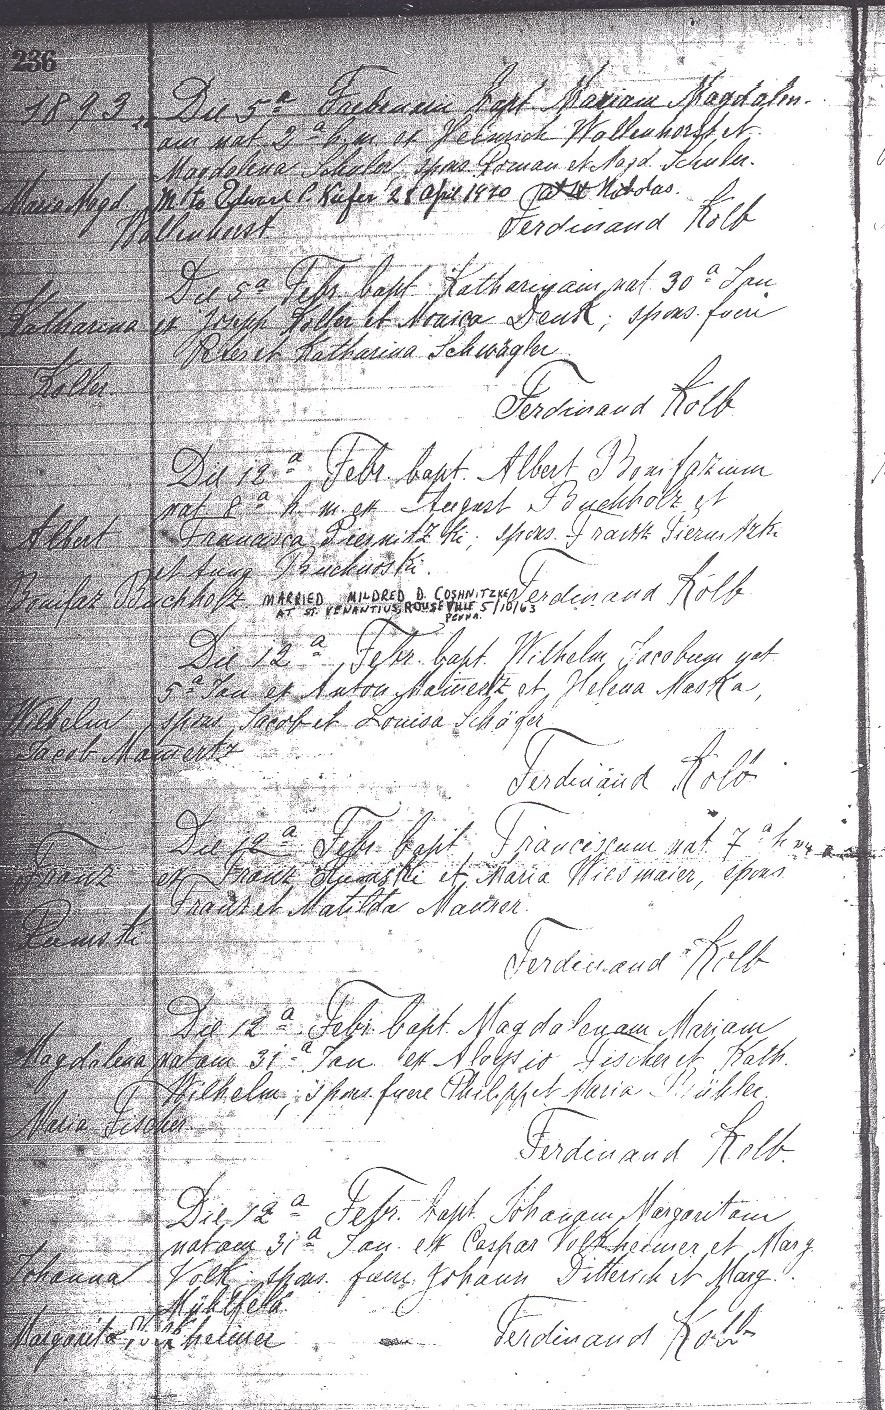 236
1893. Die 5ª Februar bapt Mariam Magdalen-
am nat 2ª h. m. ex Heinrich Wollenhorst et
Magdalena Schuler, spons Roman et Magd. Schuler.
Maria Magd M. to Edward C. Kiefer 28 April 1920 at St Nicholas.
Wollenhorst Ferdinand Kolb
Die 5ª Febr. bapt Katharinam nat 30ª Jan
Katharina ex Joseph Koller et Monica Denk; spons. fueri
Peter et Katharina Schwägler
Koller. Ferdinand Kolb
Die 12ª Febr. bapt. Albert Bonifazium
nat 8ª h. m. ex August Buchholz et
Albert Francisca Piernitzki; spons. Frank Piernitzki
et Anna
Bonifaz Buchholz MARRIED MILDRED D. COSHNITZKE Ferdinand Kolb
AT ST. VENANTIUS, ROUSEVILLE 5/10/63
PENNA.
Die 12ª Febr. bapt. Wilhelm Jacobum nat
5ª Jan ex Anton Mamertz et Helena Maska,
Wilhelm spons Jacob et Louisa Schäfer
Jacob Mamertz
Ferdinand Kolb
Die 12ª Febr. bapt. Franciscum nat 7ª h m
Franz ex Frank et Maria Wiesmaier, spons
Franz et Matilda Mauser.
Ferdinand Kolb
Die 12ª Febr. bapt. Magdalenam Mariam
Magdalena natam 31ª Jan ex Aloysio Fischer et Kath.
Wilhelm, spons. fuere Philipp et Maria
Maria Fischer.
Ferdinand Kolb.
Die 12ª Febr. bapt. Johanam Margaritam
natam 31ª Jan. ex Caspar Volkheimer et Marg
Johanna Volk, spons. fuere Johann Ditterich et Marg.
Mühlfeld
Margarita Volkheimer Ferdinand Kolb